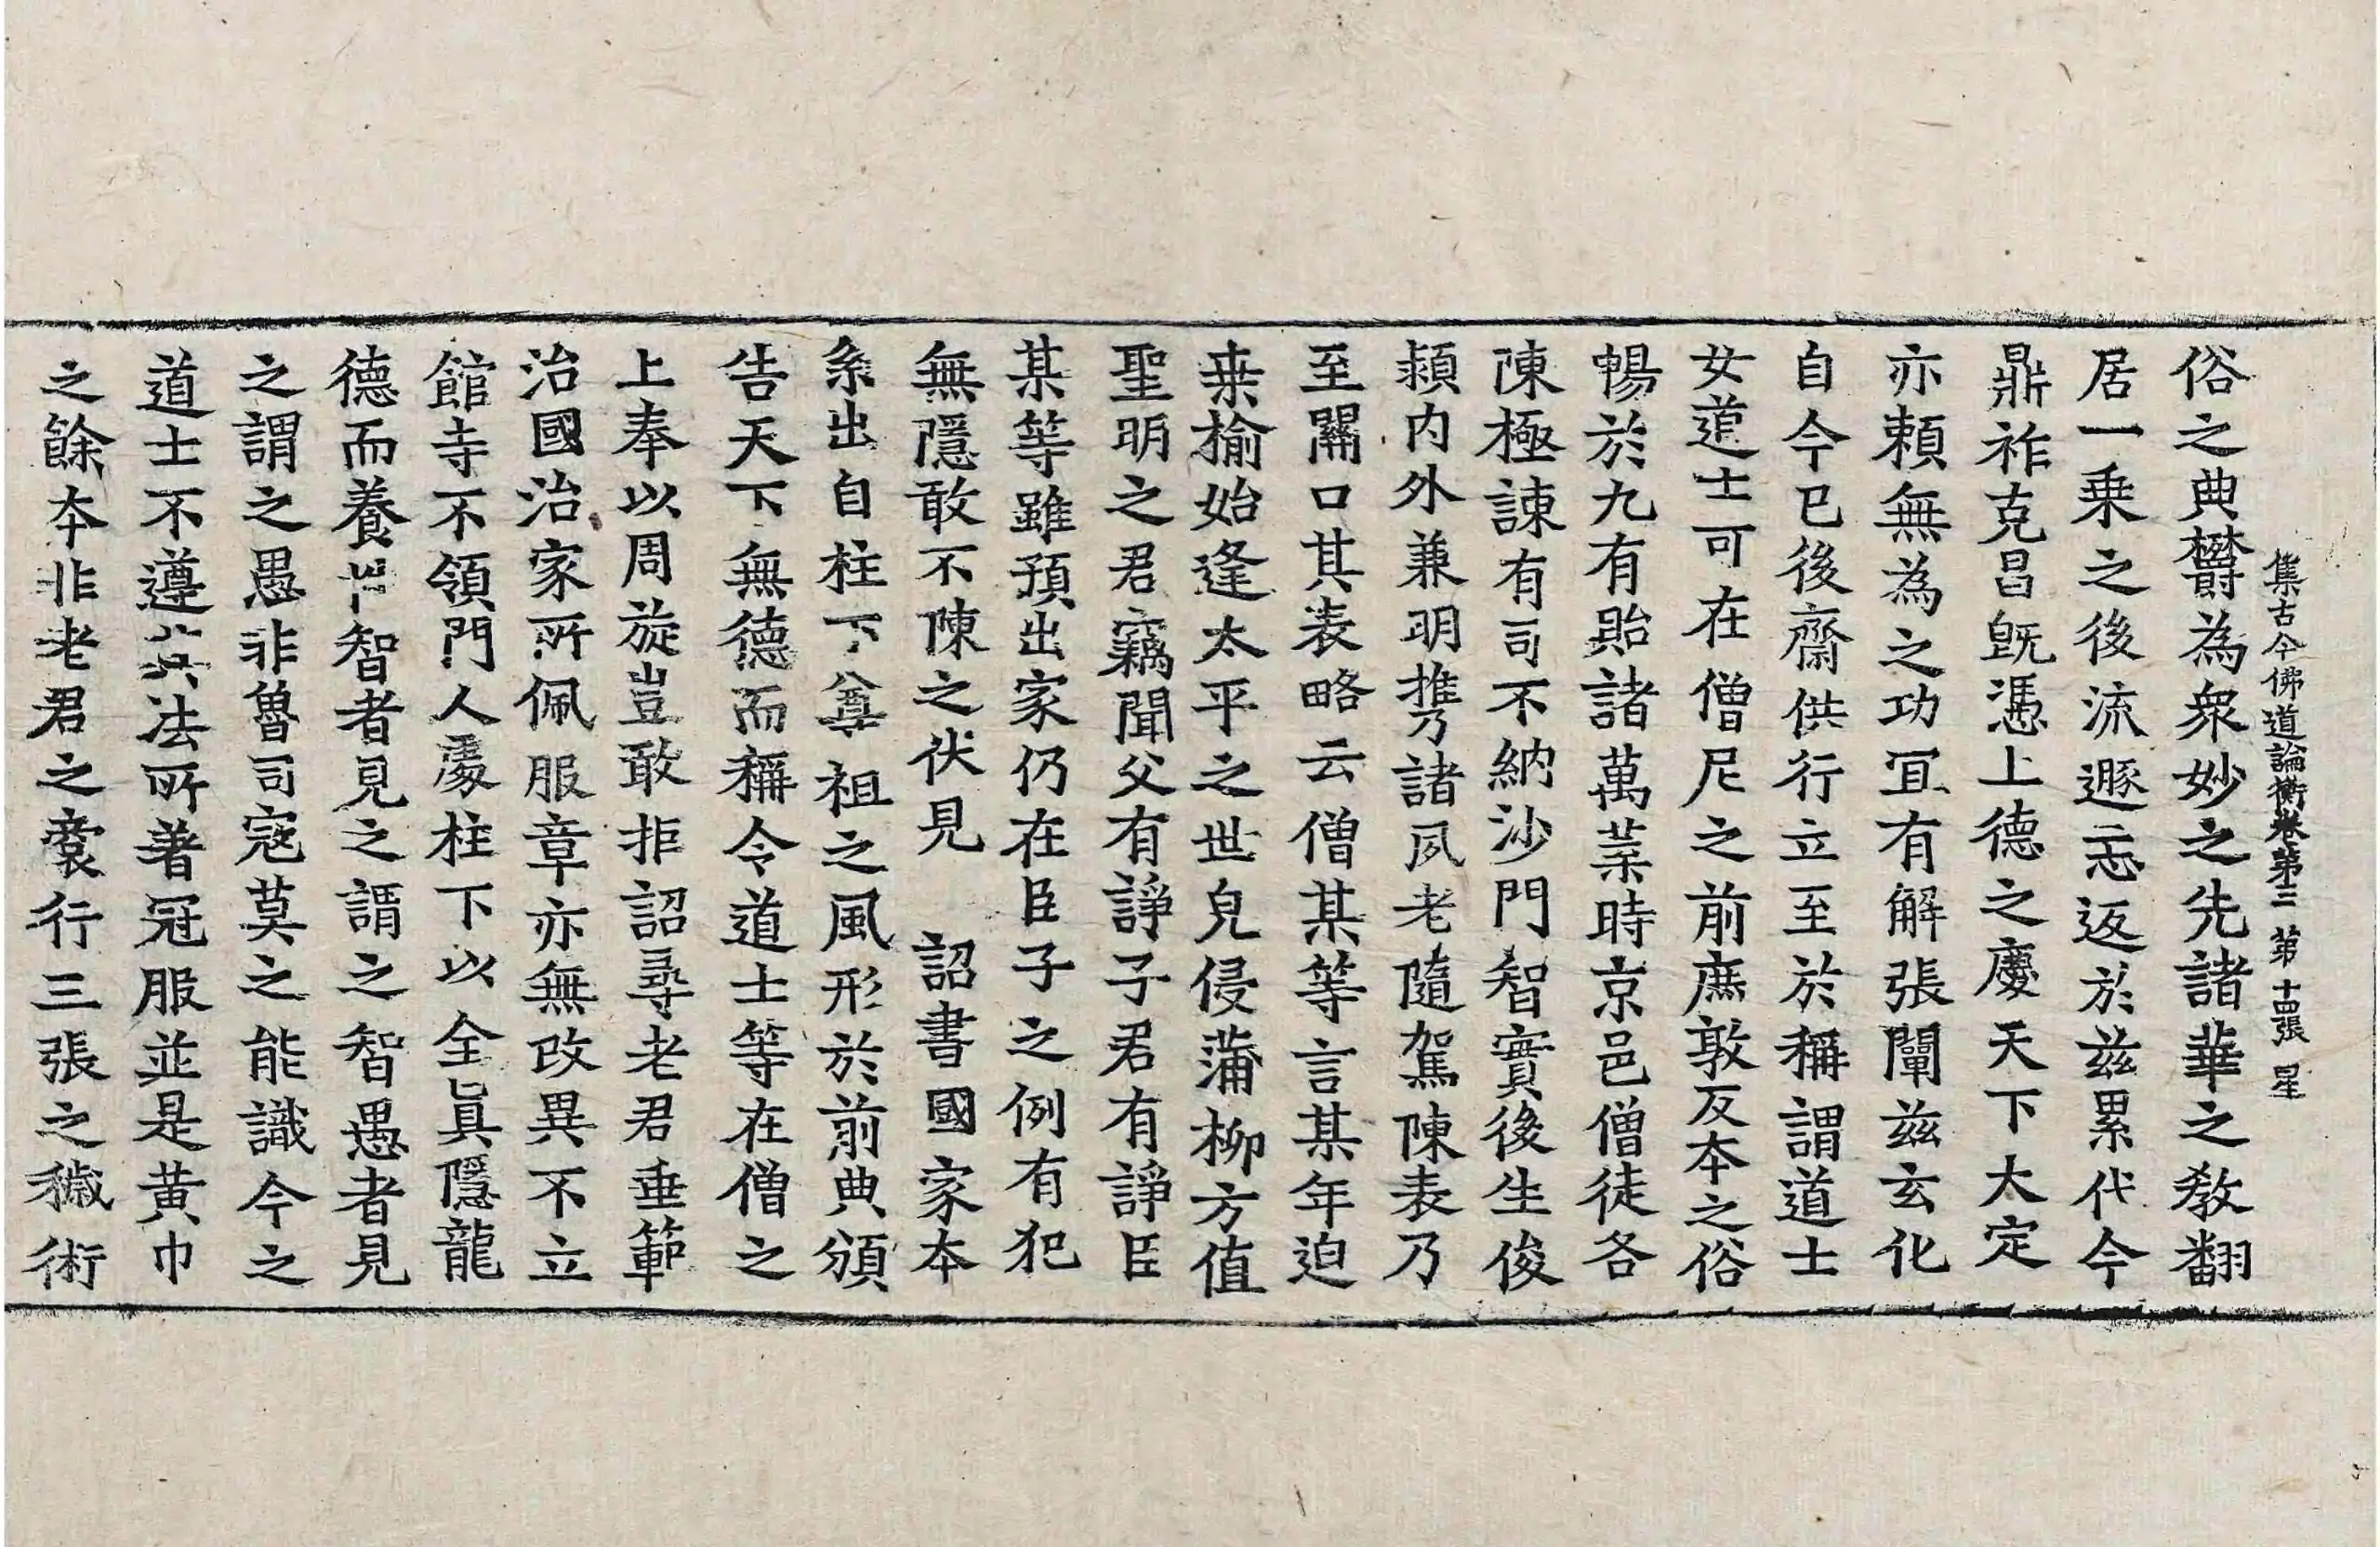 集古今佛道論衡卷第三 第十四張 星
俗之典欝為衆妙之先諸華之教翻
居一乗之後流遯忘返於兹累代今
鼎祚克昌旣憑上德之慶天下大定
亦頼無為之功冝有解張闡兹玄化
自今已後齋供行立至於稱謂道士
女道士可在僧尼之前庶敦反本之俗
暢於九有貽諸萬葉時京邑僧徒各
陳極諌有司不納沙門智實後生俊
頴内外兼明携諸夙老隨駕陳表乃
至關口其表略云僧某等言某年迫
桒榆始逢太平之世皃侵蒲柳方值
聖明之君竊聞父有諍子君有諍臣
某等雖預出家仍在臣子之例有犯
無隱敢不陳之伏見 詔書國家本
系出自柱下尊祖之風形於前典頒
告天下無德而稱令道士等在僧之
上奉以周旋豈敢拒詔尋老君垂範
治國治家所佩服章亦無改異不立
館寺不領門人處柱下以全眞隱龍
德而養性智者見之謂之智愚者見
之謂之愚非魯司寇莫之能識今之
道士不遵其法所著冠服並是黄巾
之餘本非老君之裔行三張之穢術